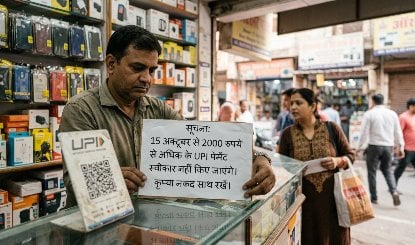 UPI
सूचना:
15 अक्टूबर से 2000 रुपये
से अधिक के UPI पेमेंट
स्वीकार नहीं किए जाएंगे।
कृप्या नकद साथ रखें।